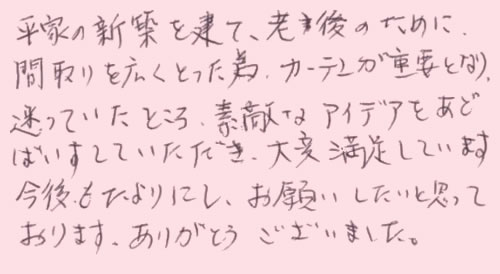 平家の新築を建て、老後のために、
間取りを広くとった為、カーテンが重要となり、
迷っていたところ、素敵なアイデアをあど
ばいすしていただき、大変満足しています
今後もたよりにし、お願いしたいと思って
おります、ありがとうございました。